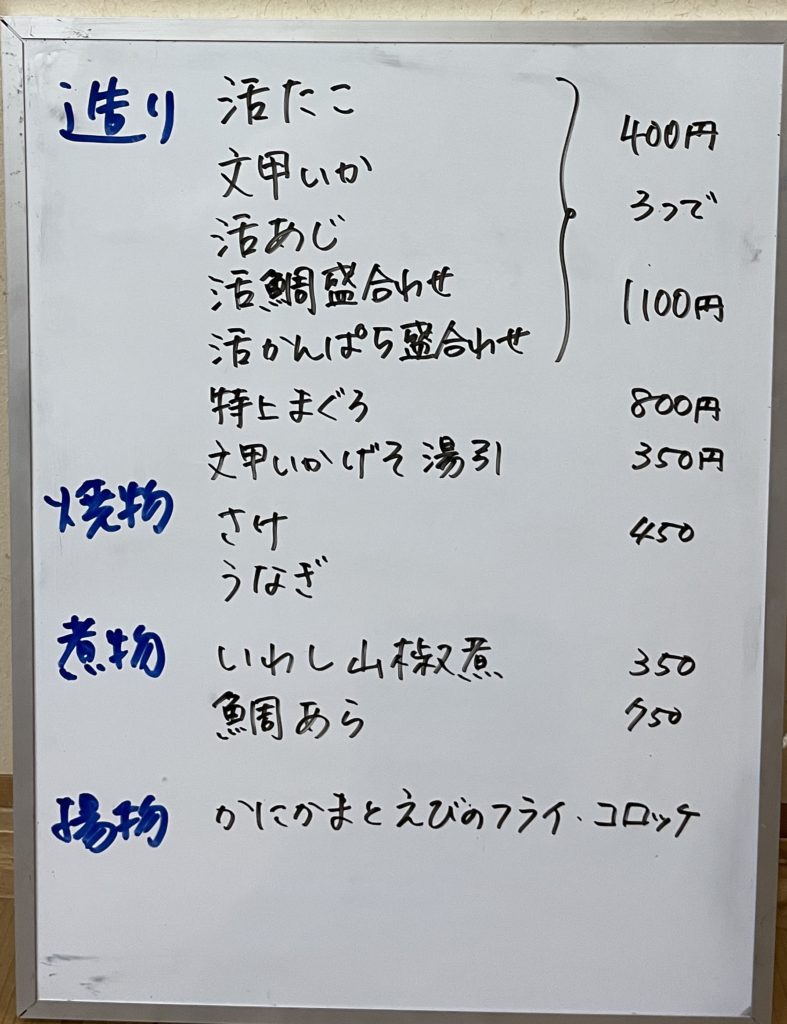 造り 活たこ
文甲いか
活あじ
活鯛盛合わせ
活かんぱち盛合わせ
400円
3つで
1100円
特上まぐろ 800円
文甲いかげそ湯引 350円
焼物 さけ 450
うなぎ
煮物 いわし山椒煮 350
鯛あら 750
揚物 かにかまとえびのフライ・コロッケ